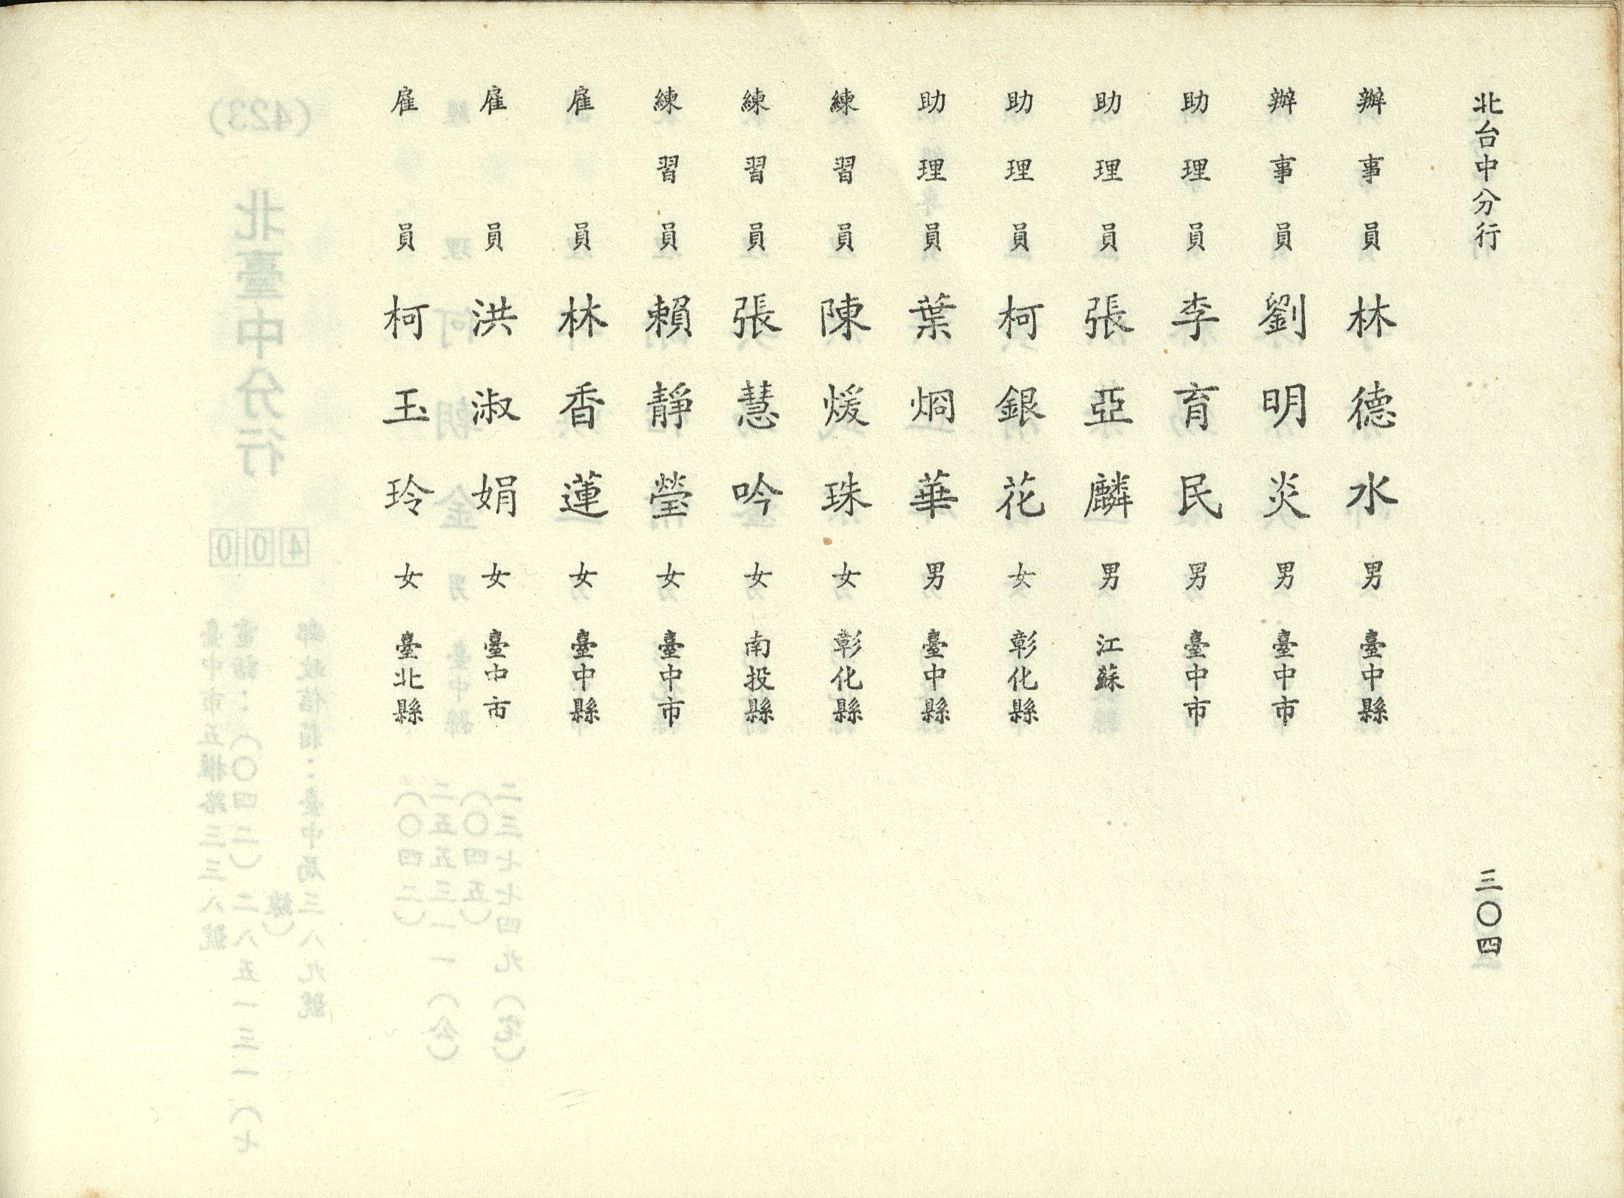 北台中分行
三〇四
辦事員 林德水 男 臺中縣
辦事員 劉明炎 男 臺中市
助理員 李育民 男 臺中市
助理員 張亞麟 男 江蘇
助理員 柯銀花 女 彰化縣
助理員 葉烱華 男 臺中縣
練習員 陳煖珠 女 彰化縣
練習員 張慧吟 女 南投縣
練習員 賴靜瑩 女 臺中市
雇員 林香蓮 女 臺中縣
雇員 洪淑娟 女 臺中市
雇員 柯玉玲 女 臺北縣